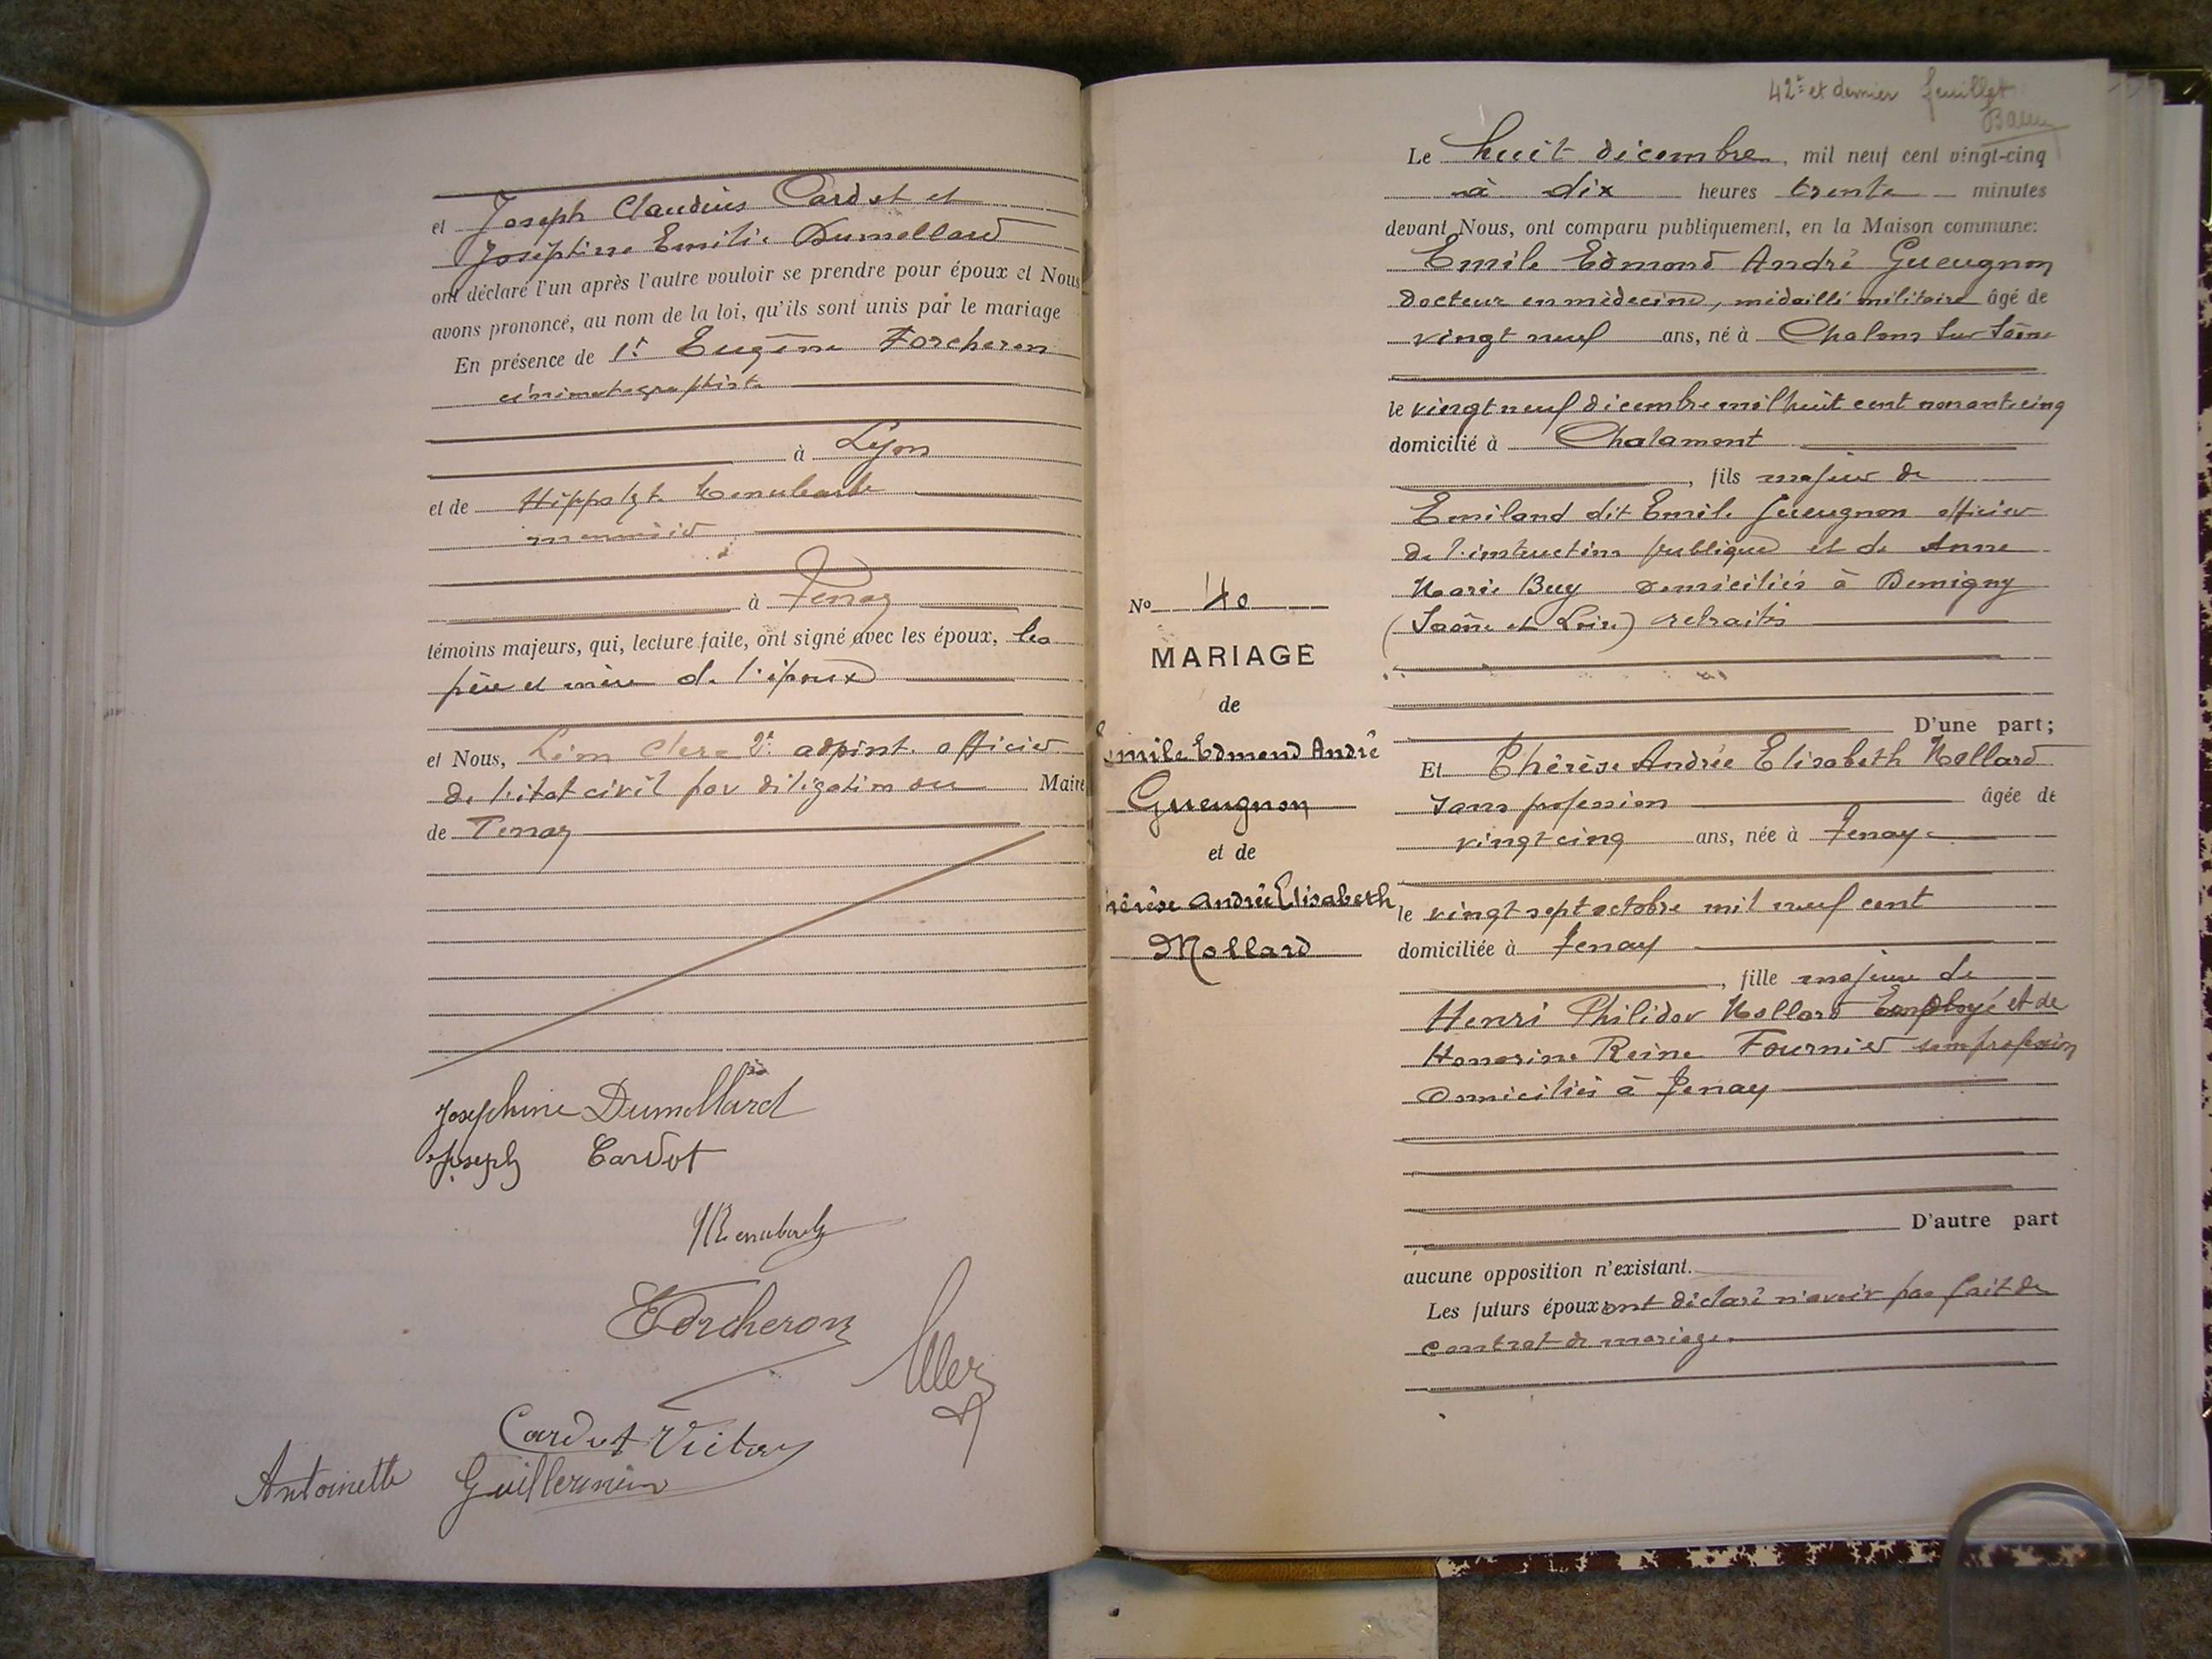 et Joseph Claudius Cardot et
Joséphine Emilie Dumollard
ont déclaré l'un après l'autre vouloir se prendre pour époux et Nous
avons prononcé, au nom de la loi, qu'ils sont unis par le mariage
En présence de 1º Eugène Forcheron
cinématographiste
à Lyon
et de Hippolyte
menuisier
à Tenay
témoins majeurs, qui, lecture faite, ont signé avec les époux, les
père et mère de l'époux
et Nous, Léon Clerc 2e adjoint officier
de l'état civil par délégation du Maire
de Tenay
Joséphine Dumollard
Joseph Cardot
EForcheron
Cardot Victor
Antoinette Guillermin
42e et dernier feuillet
Le huit décembre, mil neuf cent vingt-cinq
à dix heures trente minutes
devant Nous, ont comparu publiquement, en la Maison commune:
Emile Edmond André Gueugnon
docteur en médecine, médaillé militaire âgé de
vingt neuf ans, né à Chalons sur Saône
le vingt neuf décembre mil huit cent nonante cinq
domicilié à Chalamont
, fils majeur de
Emiland dit Emile Gueugnon officier
de l'instruction publique et de Anne
Marie Buy domiciliés à Demigny
(Saône et Loire) retraités
D'une part;
Et Thérèse Andrée Elisabeth Mollard
sans profession âgée de
vingt cinq ans, née à Tenay
le vingt sept octobre mil neuf cent
domiciliée à Tenay
, fille majeure de
Henri Philidor Mollard Employé et de
Honorine Reine Fournier sans profession
domiciliés à Tenay
D'autre part
aucune opposition n'existant.
Les futurs époux ont déclaré n'avoir pas fait de
contrat de mariage.
No 40
MARIAGE
de
Emile Edmond André
Gueugnon
et de
hérèse Andrée Elisabeth
Mollard